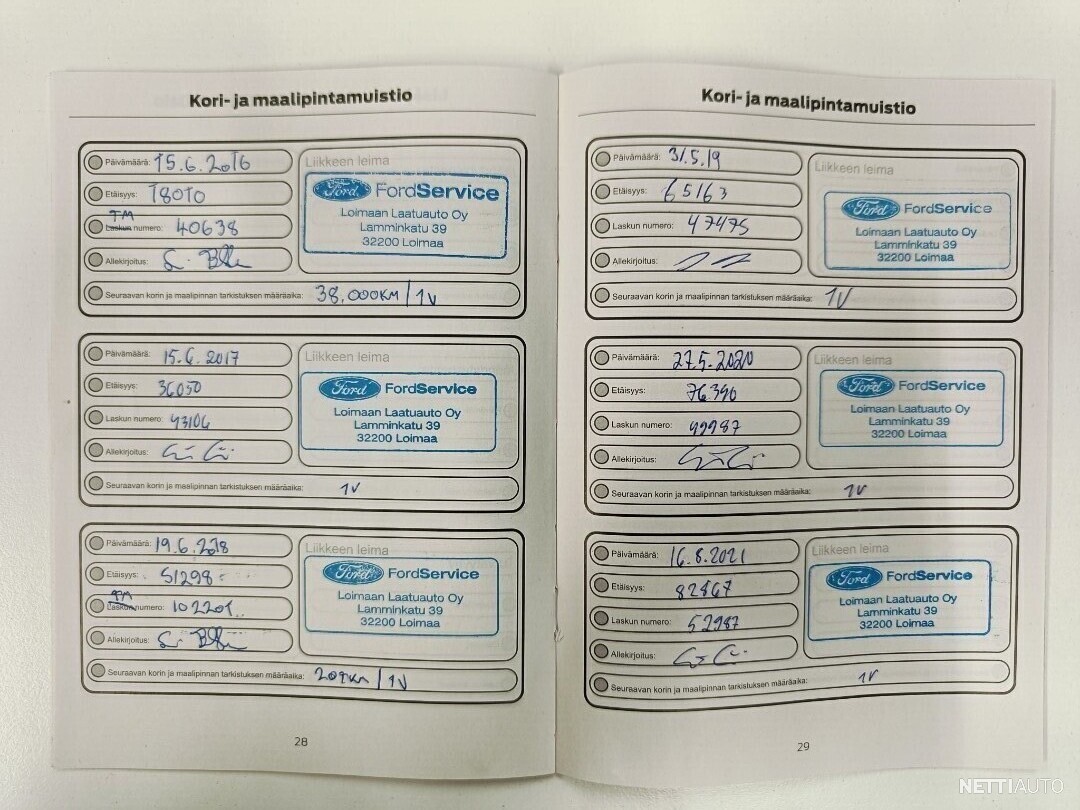 Kori- ja maalipintamuistio
Päivämäärä: 15.6.2016
Liikkeen leima
Etäisyys: 18010
Ford FordService
TM
Laskun numero: 40638
Loimaan Laatuauto Oy
Lamminkatu 39
32200 Loimaa
Allekirjoitus:
Seuraavan korin ja maalipinnan tarkistuksen määräaika: 38.000KM / 1V
Päivämäärä: 15.6.2017
Liikkeen leima
Etäisyys: 36050
Ford FordService
Laskun numero: 43106
Loimaan Laatuauto Oy
Lamminkatu 39
32200 Loimaa
Allekirjoitus:
Seuraavan korin ja maalipinnan tarkistuksen määräaika: 1V
Päivämäärä: 19.6.2018
Liikkeen leima
Etäisyys: 51298
Ford FordService
TM
Laskun numero: 102201
Loimaan Laatuauto Oy
Lamminkatu 39
32200 Loimaa
Allekirjoitus:
Seuraavan korin ja maalipinnan tarkistuksen määräaika: / 1V
28
Kori- ja maalipintamuistio
Päivämäärä: 31.5.19
Liikkeen leima
Etäisyys: 65163
Ford FordService
Laskun numero: 47475
Loimaan Laatuauto Oy
Lamminkatu 39
32200 Loimaa
Allekirjoitus:
Seuraavan korin ja maalipinnan tarkistuksen määräaika: 1V
Päivämäärä: 27.5.2020
Liikkeen leima
Etäisyys: 76390
Ford FordService
Laskun numero: 49987
Loimaan Laatuauto Oy
Lamminkatu 39
32200 Loimaa
Allekirjoitus:
Seuraavan korin ja maalipinnan tarkistuksen määräaika: 1V
Päivämäärä: 16.8.2021
Liikkeen leima
Etäisyys: 82867
Ford FordService
Laskun numero: 52987
Loimaan Laatuauto Oy
Lamminkatu 39
32200 Loimaa
Allekirjoitus:
Seuraavan korin ja maalipinnan tarkistuksen määräaika: 1V
29
NETTIAUTO